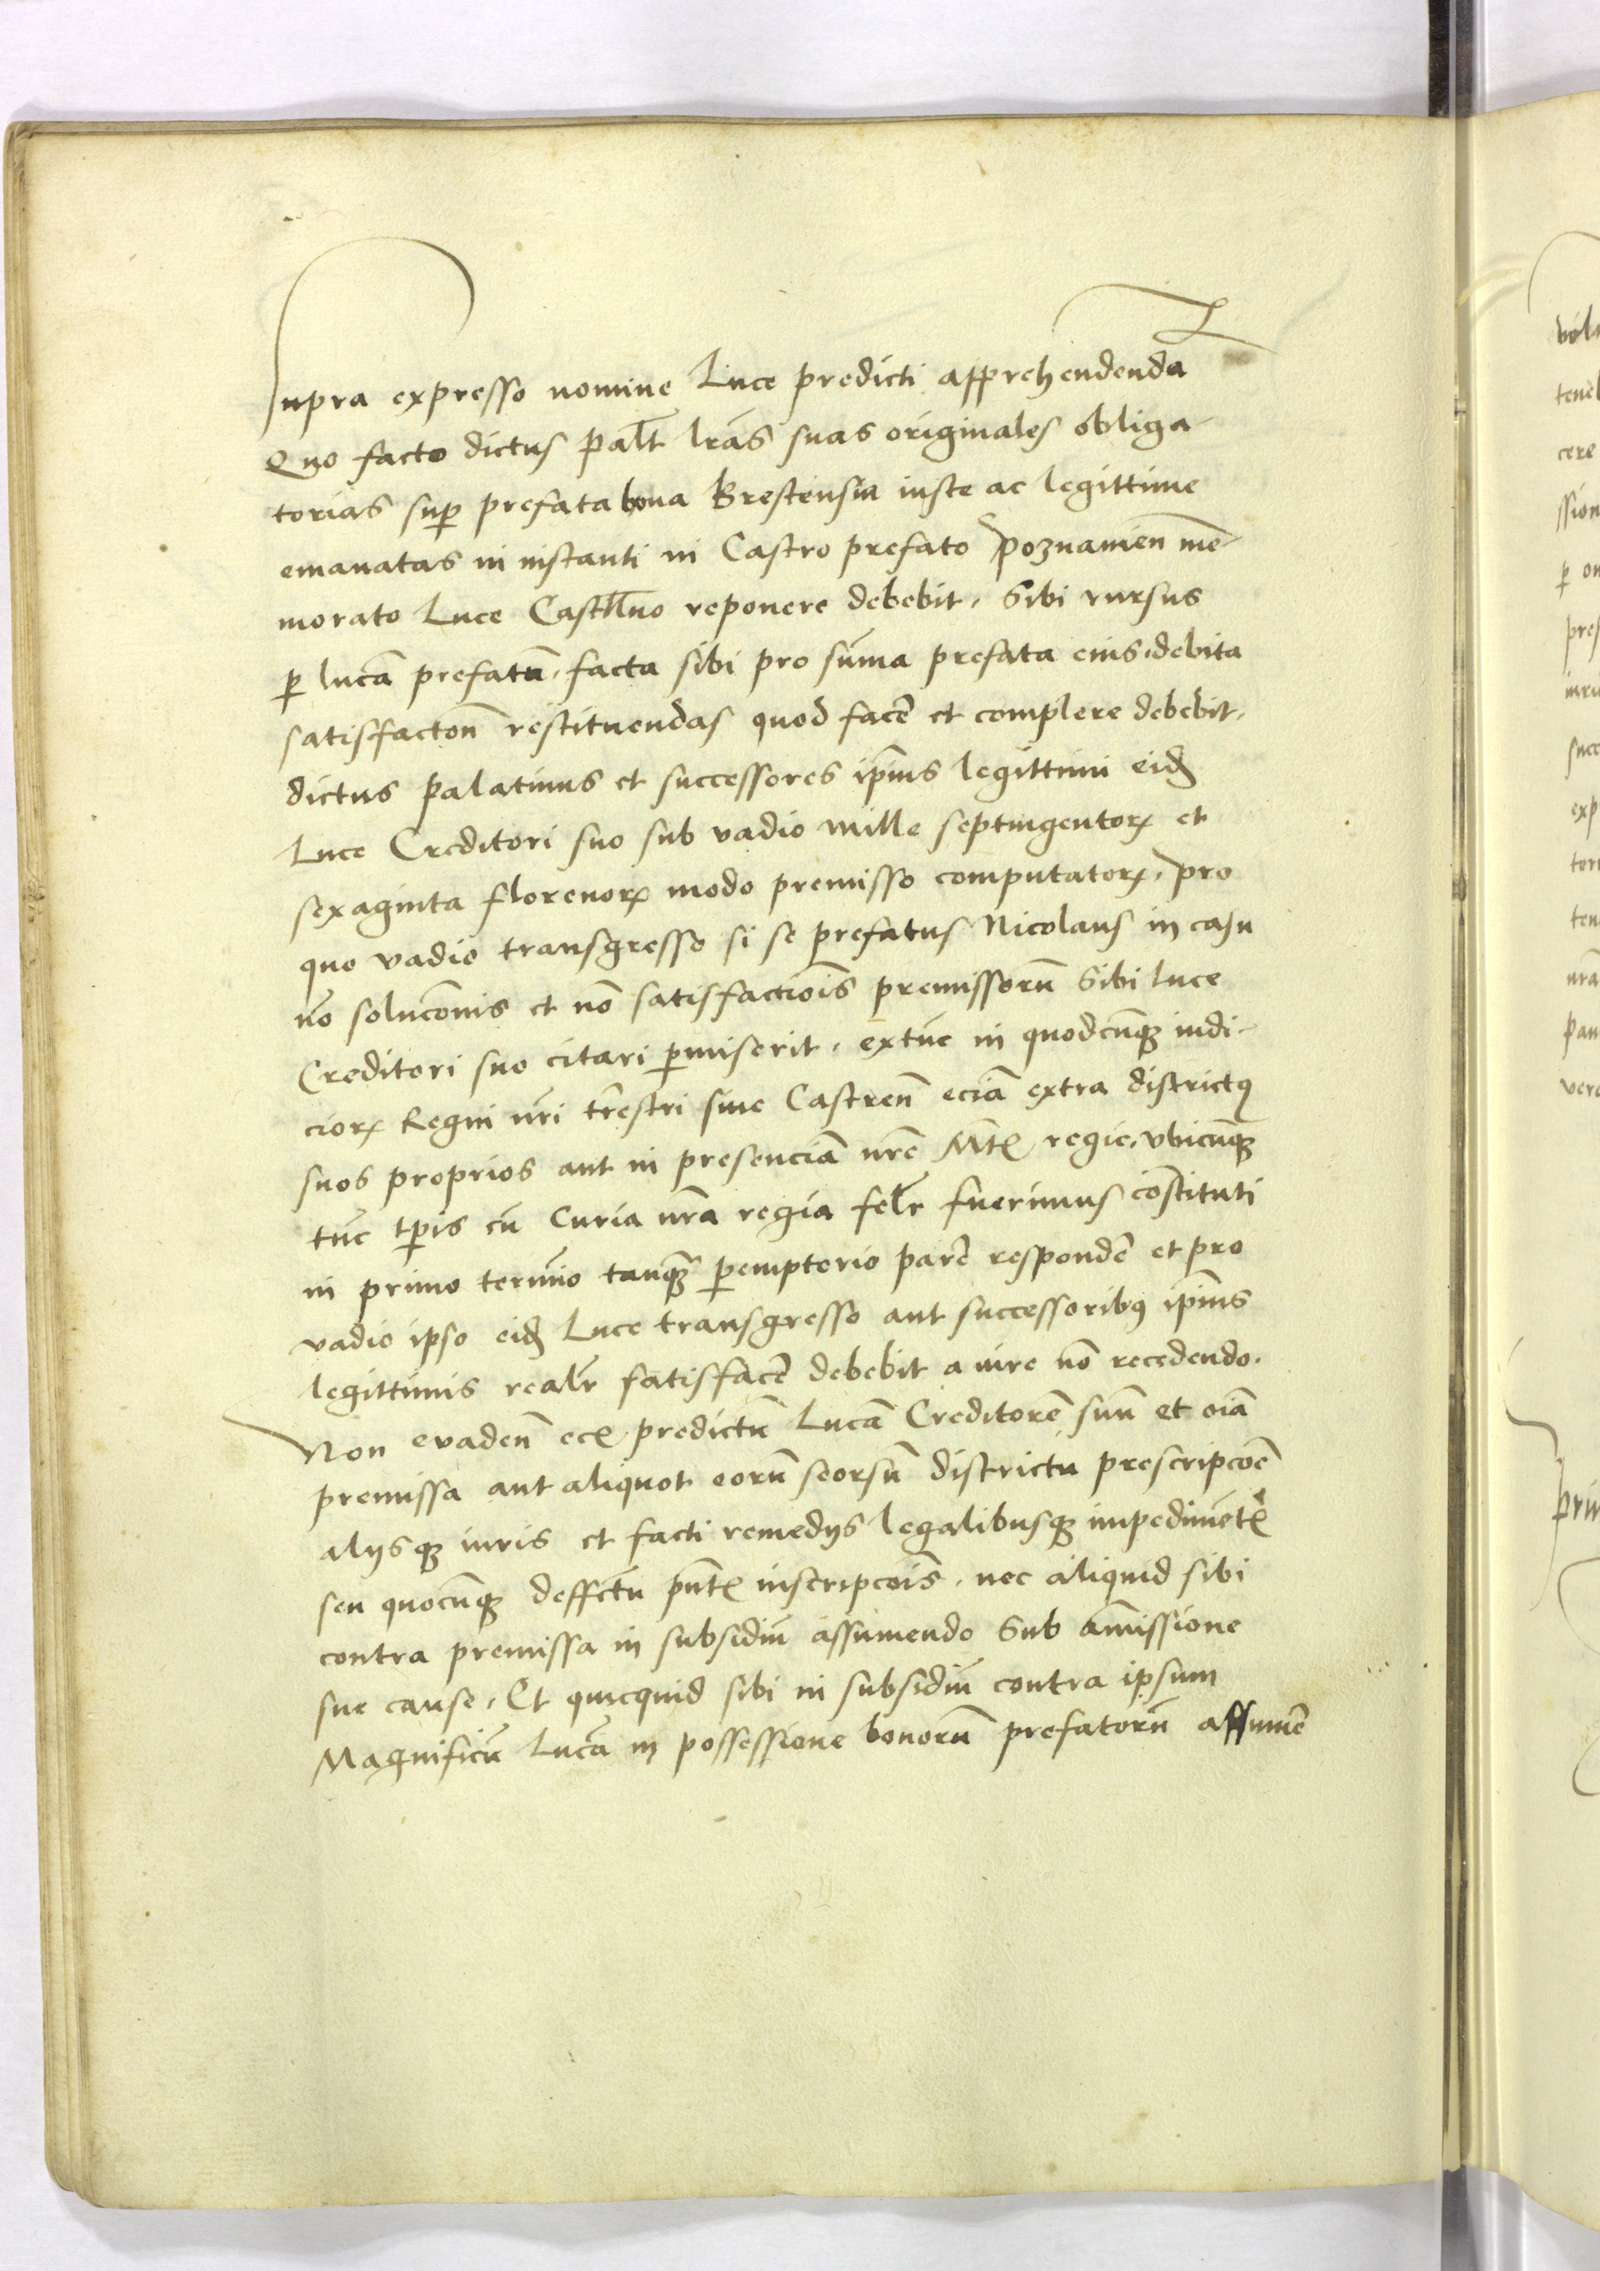 supra expresso nomine Luce predicti apprehendenda
Quo facto dictus palt̃ lrãs suas originales obliga-
torias sup̱ prefata bona Brestensia iuste ac legittime
emanatas in instanti in Castro prefato Poznanien̄ me-
morato Luce Castll̃no reponere debebit, Sibi rursus
ꝑ lucã prefatũ, facta sibi pro sũma prefata eius, debita
satisfactōn restituendas quod facẽ et complere debebit,
dictus palatinus et successores ip̃ius legittimi eid̃
Luce Creditori suo sub vadio mille septingentoꝝ et
sexaginta florenoꝝ modo premisso computatoꝝ, Pro
quo vadio transgresso si se prefatus Nicolaus in casu
nõ solucõnis et nõ satisfacciõis premissorũ Sibi Luce
Creditori suo citari ꝑmiserit, extũc in quodcũqꝫ iudi-
cioꝝ Regni nr̃i tr̃estri siue Castren̄ eciã extra districtꝰ
suos proprios aut in presenciã nr̃e Mt̃ꝭ regie, vbicũqꝫ
tũc tp̃is cũ Curia nr̃a regia fel̃r fuerimus cõstituti
in primo termĩo tanqꝫ ꝑemptorio parẽ respondẽ et pro
vadio ipso eid̃ Luce transgresso aut successoribꝰ ip̃ius
legittimis real̃r satisfacẽ debebit a iure nõ recedendo.
Non evaden̄ ecꝭ predictũ Lucã Creditorẽ suũ et oĩa
premissa aut aliquot eorũ seorsũ districtu prescripcõe
alijsqꝫ iuris et facti remedijs legalibusqꝫ impedimẽtꝭ
seu quocũqꝫ deffctu pñtꝭ inscripcõis, nec aliquid sibi
contra premissa in subsidiũ assumendo Sub amissione
sue cause, Et quicquid sibi in subsidiũ contra ipsum
Magnificũ Lucã in possessione bonorũ prefatorũ assumẽ